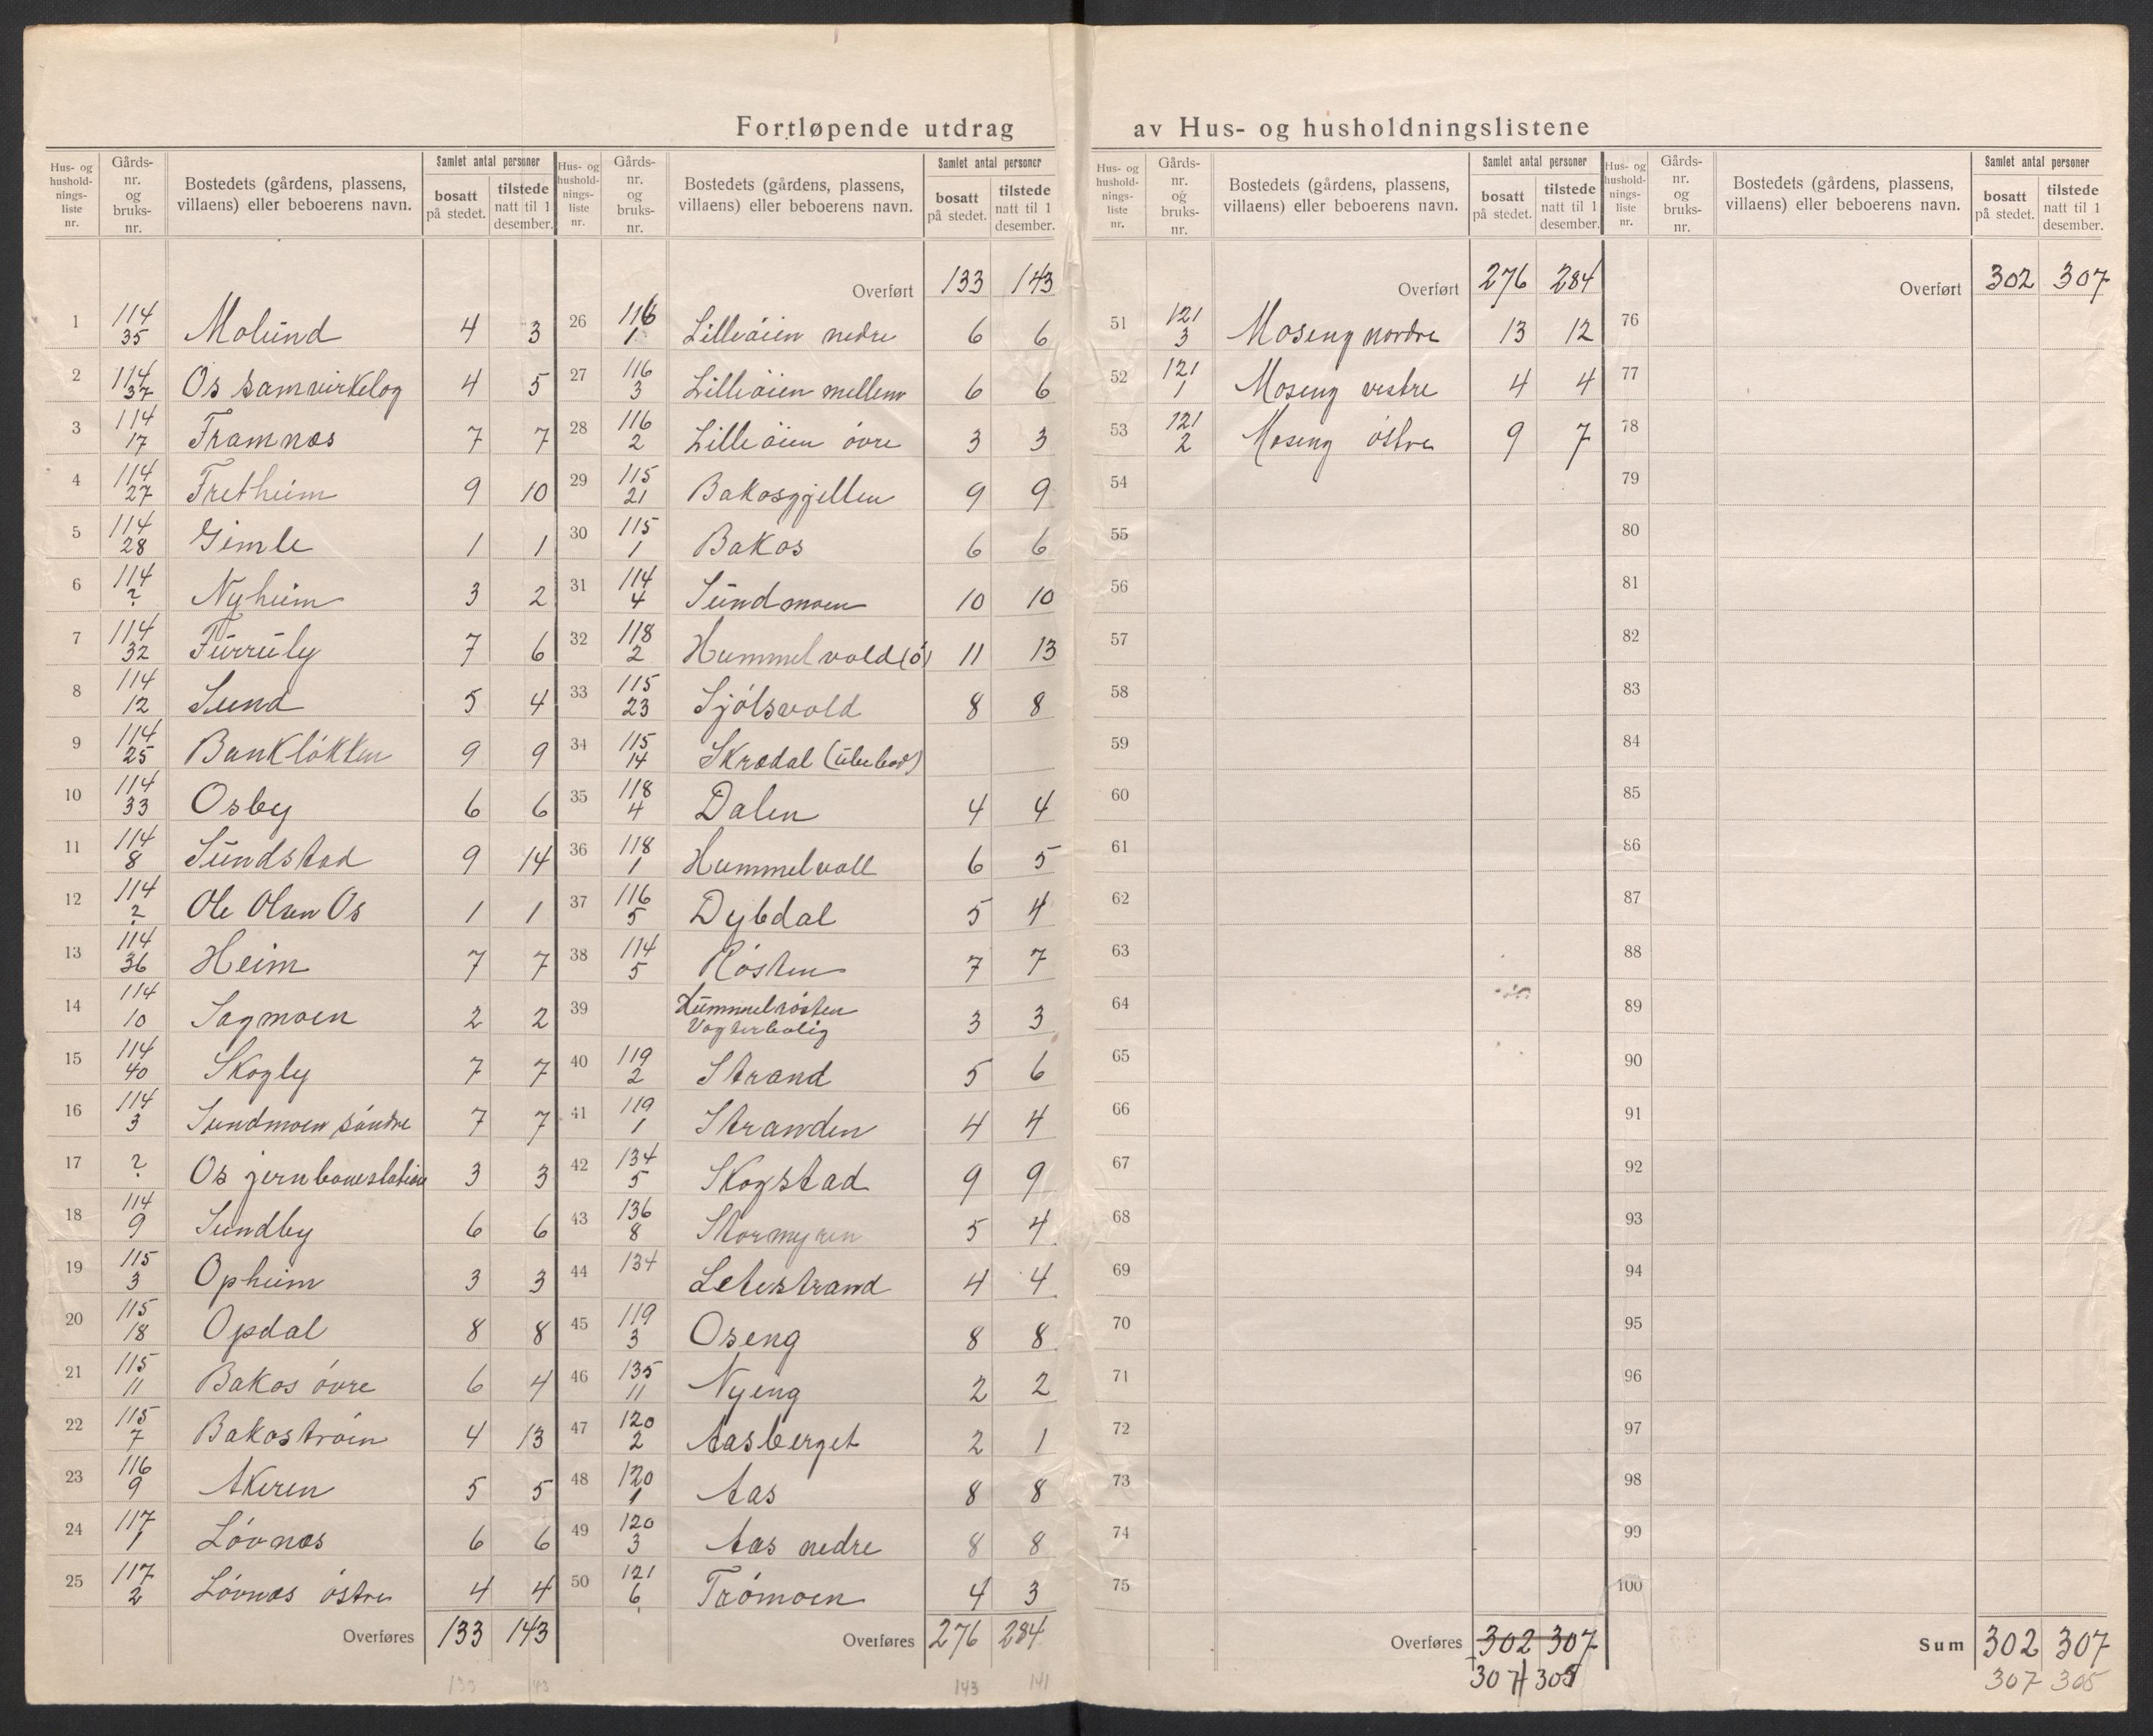 Fortløpende utdrag av Hus- og husholdningslistene
Hus- og hushold-nings-liste nr. | Gårds-nr. og bruks-nr. | Bostedets (gårdens, plassens, villaens) eller beboerens navn. | Samlet antal personer | bosatt på stedet. | tilstede natt til 1 desember.
1 114/35 Molund 4 3
2 114/37 Os samvirkelag 4 5
3 114/17 Framnæs 7 7
4 114/27 Fretheim 9 10
5 114/28 Gimle 1 1
6 114/? Nyheim 3 2
7 114/32 Furruly 7 6
8 114/12 Sund 5 4
9 114/25 Bankløkken 9 9
10 114/33 Osby 6 6
11 114/8 Sundstad 9 14
12 114/? Ole Olsen Os 1 1
13 114/36 Heim 7 7
14 114/10 Sagmoen 2 2
15 114/40 Skogly 7 7
16 114/3 Sundmoen søndre 7 7
17 ? Os jernbanestation 3 3
18 114/9 Sundby 6 6
19 115/3 Opheim 3 3
20 115/18 Opdal 8 8
21 115/11 Bakos øvre 6 4
22 115/7 Bakostrøen 4 13
23 116/9 Akeren 5 5
24 117/1 Løvnæs 6 6
25 117/2 Løvnæs østre 4 4
Overføres 133 143
133 143
Hus- og hushold-nings-liste nr. | Gårds-nr. og bruks-nr. | Bostedets (gårdens, plassens, villaens) eller beboerens navn. | Samlet antal personer | bosatt på stedet. | tilstede natt til 1 desember.
Overført 133 143
26 116/1 Lilleøien nedre 6 6
27 116/3 Lilleøien mellem 6 6
28 116/2 Lilleøien øvre 3 3
29 115/21 Bakosgjellen 9 9
30 115/1 Bakos 6 6
31 114/4 Sundmoen 10 10
32 118/2 Hummelvold (ø) 11 13
33 115/23 Sjølsvold 8 8
34 115/14 Skrædal (ubebod)
35 118/4 Dalen 4 4
36 118/1 Hummelvoll 6 5
37 116/5 Dybdal 5 4
38 114/5 Røsten 7 7
39 Hummelrøsten Vogterbolig 3 3
40 119/2 Strand 5 6
41 119/1 Stranden 4 4
42 134/5 Skogstad 9 9
43 136/8 Stormyren 5 4
44 134 Letestrand 4 4
45 119/3 Oseng 8 8
46 135/11 Nyeng 2 2
47 120/2 Aasberget 2 1
48 120/1 Aas 8 8
49 120/3 Aas nedre 8 8
50 121/6 Trømoen 4 3
Overføres 276 284
143 141
Hus- og hushold-nings-liste nr. | Gårds-nr. og bruks-nr. | Bostedets (gårdens, plassens, villaens) eller beboerens navn. | Samlet antal personer | bosatt på stedet. | tilstede natt til 1 desember.
Overført 276 284
51 121/3 Moseng nordre 13 12
52 121/1 Moseng vestre 4 4
53 121/2 Moseng østre 9 7
54
55
56
57
58
59
60
61
62
63
64
65
66
67
68
69
70
71
72
73
74
75
Overføres 302 307
307 305
Hus- og hushold-nings-liste nr. | Gårds-nr. og bruks-nr. | Bostedets (gårdens, plassens, villaens) eller beboerens navn. | Samlet antal personer | bosatt på stedet. | tilstede natt til 1 desember.
Overført 302 307
76
77
78
79
80
81
82
83
84
85
86
87
88
89
90
91
92
93
94
95
96
97
98
99
100
Sum 302 307
307 305